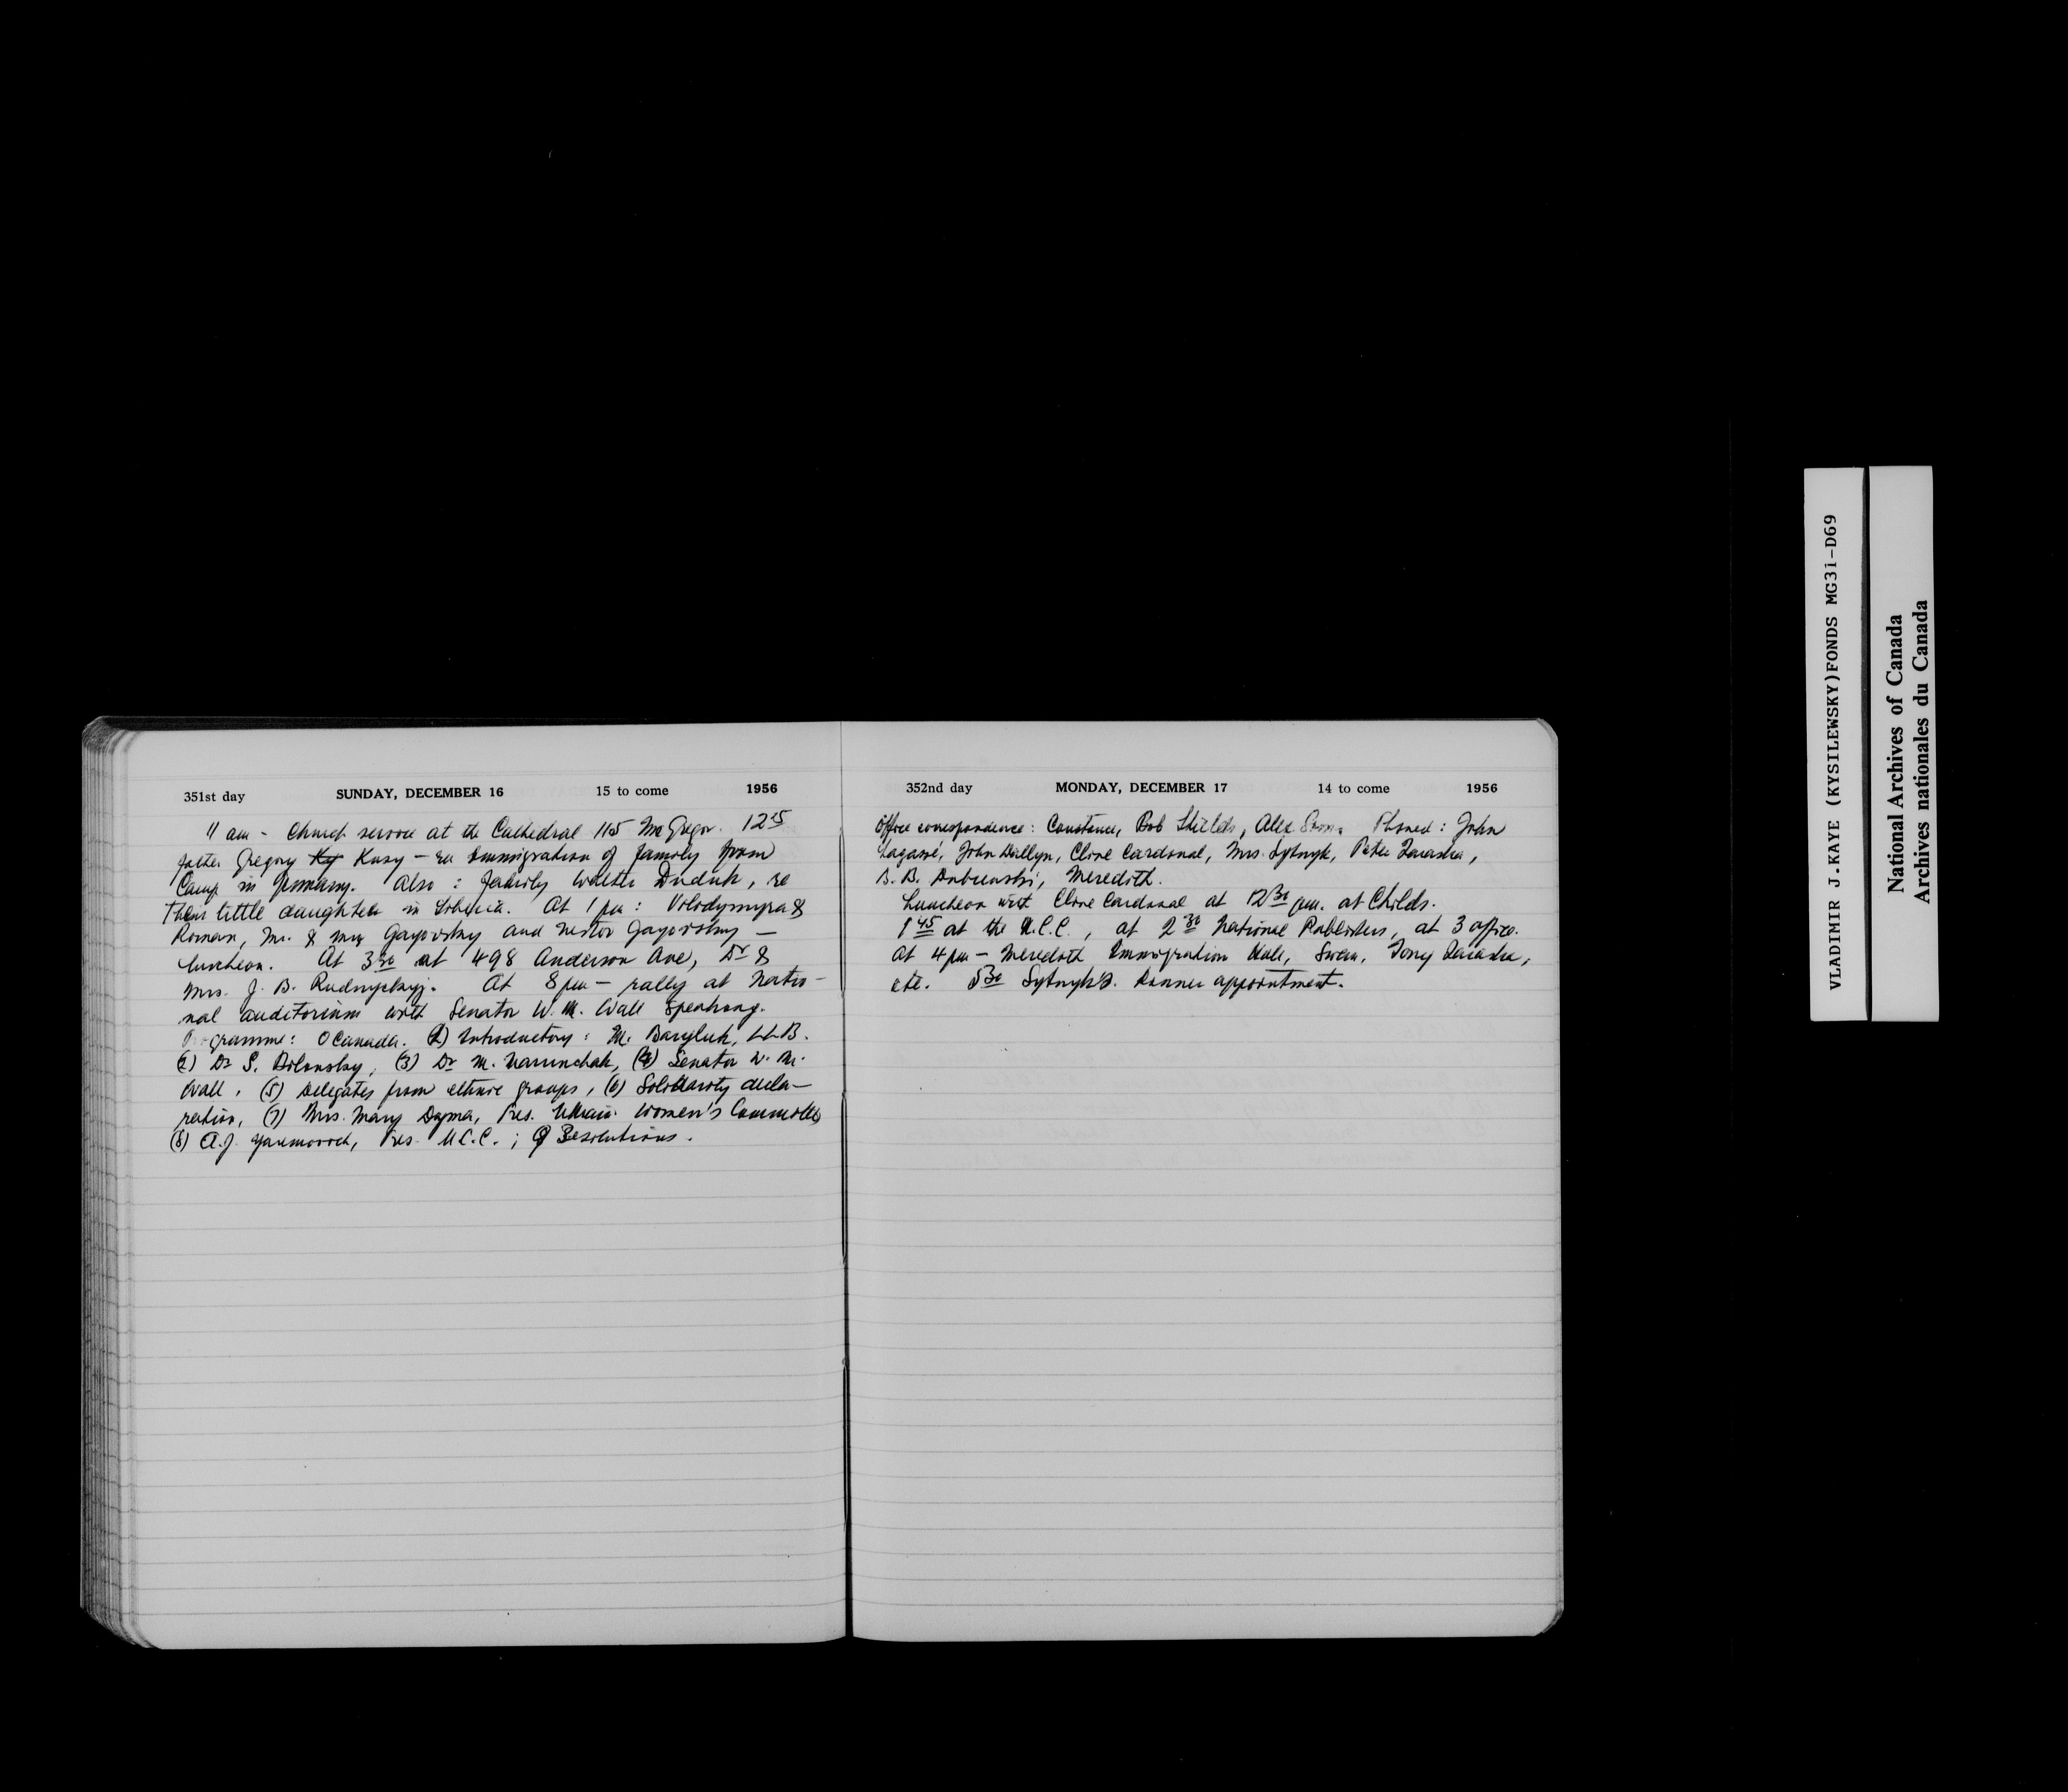 351st day SUNDAY, DECEMBER 16 15 to come 1956
11 am - Church service at the Cathedral 115 McGregor. 12 15
father Gregory Kusy - re Immigration of family from
Camp in Germany. Also : family Walter Duduk, re
their little daughter in Siberia. At 1 pm : Volodymyra &
Roman, Mr. & Mrs Gayovsky and Nestor Gayovsky -
luncheon. At 3 30 at 498 Anderson Ave, Dr &
Mrs. J. B. Rudnyckyj. At 8 pm - rally at Natio-
nal auditorium with Senator W. M. Wall speaking.
Programme: O Canada. (1) Introductory : M. Bargluk, LL.B.
(2) Dr S. Bilonsky, (3) Dr M. Marunchak, (4) Senator W. M.
Wall, (5) Delegates from ethnic groups, (6) Solidarity decla-
ration, (7) Mrs. Mary Dyma, Pres. Ukrain. Women's Committee
(8) A.J. Yaremovich, Pres. U.C.C. ; 9 Resolutions.
352nd day MONDAY, DECEMBER 17 14 to come 1956
Office correspondence : Constance, Bob Shields, Alex Phoned : John
Lagassé, John Dallyn, Clive Cardinal, Mrs. Sytnyk, Peter Taraska,
B. B. Dubienski, Meredith.
Luncheon with Clive Cardinal at 12 30 pm. at Childs.
1 45 at the U.C.C., at 2 30 National Publishers, at 3 office.
At 4 pm - Meredith Immigration Hall, Swan, Tony
etc. 5 30 Sytnyk's. Dinner appointment.
VLADIMIR J.KAYE (KYSILEWSKY)FONDS MG31-D69
National Archives of Canada
Archives nationales du Canada